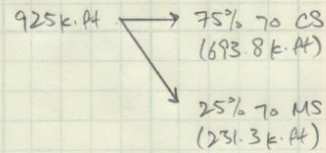 925k.ft 75% TO CS
(693.8k.ft)
25% TO MS
(231.3k.ft)